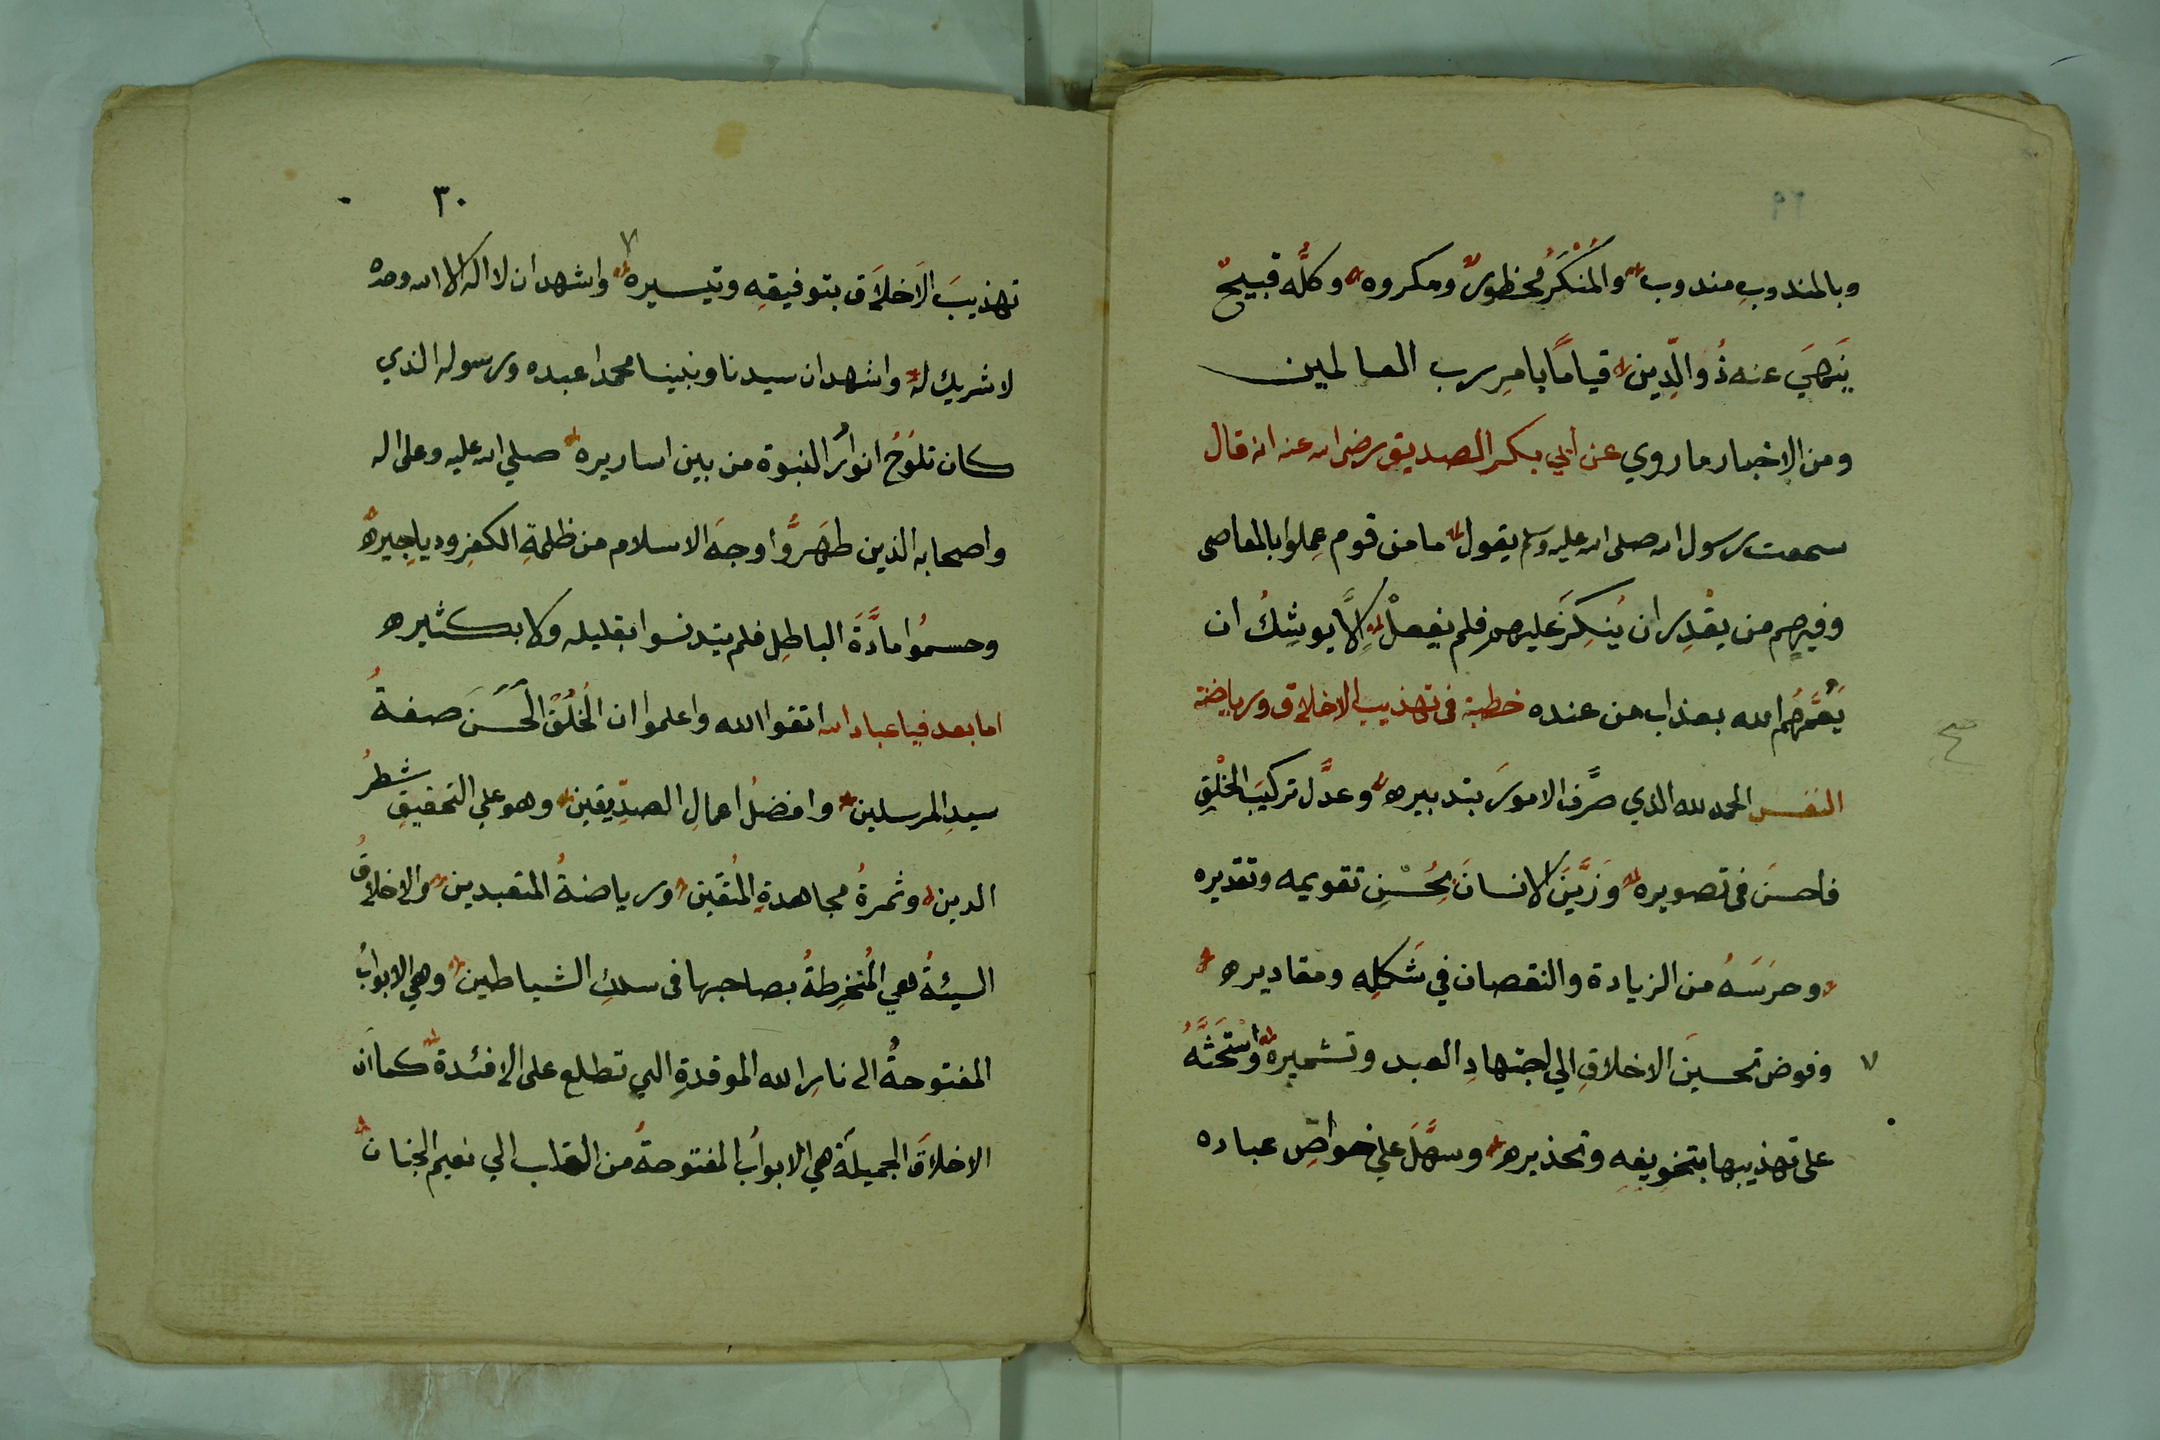 ٢٩
وبالمندوبِ مندوب والمُنْكَرُ محظورٌ ومكروه وكلُّه قبيحٌ
يَنهَيَ عنه ذُو الدِّينِ قيامًا بامرِ رب العالمين
ومن الاخبار ما روي عن ابي بكر الصديق رضى الله عنه انه قال
سمعت رسول الله صلى الله عليه وسلم يقول ما من قوم عمِلوا بالمعاصى
وفيهِم من يقْدِر ان يُنكِرَ عليهم فلم يفعلْ اِلاَّ يوشِكُ ان
يَعُمَّهُم الله بعذاب من عنده خطبة فى تهذيب الاخلاق ورياضة
النفس الحمد لله الذي صرَّف الامورَ بتدبيره وعدَّل تركيبَ الخلْقِ
فاحسنَ فى تصويره وَزَيَّنَ الانسانَ بحُسْنِ تقويمه وتقديره
وحرَسَهُ من الزيادة والنقصان في شَكلِه ومقاديره
وفوض تحسينَ الاخلاقِ الي اجتهادِ العبد وتشميره واسْتَحَثَّهُ
٧
على تهذيبها بتخويفِه وتحذيره وسهَّلَ علي خواصِّ عباده
٣٠
٧
تهذيبَ الاَخلاَق بتوفيقِه وتيسيره واشهد ان لا اله الا الله وحده
لا شريك له واشهد ان سيدنا ونبينا محمدا عبده ورسوله الذي
كان تلوُحُ انوارُ النبوة من بين اساريره صلي الله عليه وعلى اله
واصحابه الذين طهَرَّوا وجهَ الاسلام من ظلمةِ الكفرِ ودياجيره
وحسمُوا مادَّةَ الباطِلِ فلم يتدنسوا بقليله ولا بكثيره
اما بعد فيا عباد الله اتقوا الله واعلموا ان الخُلُقَ الحَسَنَ صفةُ
سيدِ المرسلين وافضلُ اعمالِ الصدِّيقين وهو علي التحقيقِ شطرُ
الدين وثمرةُ مجاهدةِ المتُقين ورياضةُ المتعبدين والاخلاقُ
السيئةُ هي المُنْخرِطةُ بصاحبها فى سلكِ الشياطين وهي الابوابُ
المفتوحةُ الى نارِ الله الموقدةِ التي تطلع على الافئدة كما ان
الاخلاقَ الجميلَةَ هي الابوابُ المفتوحةُ من القلب الي نعيم الجنان